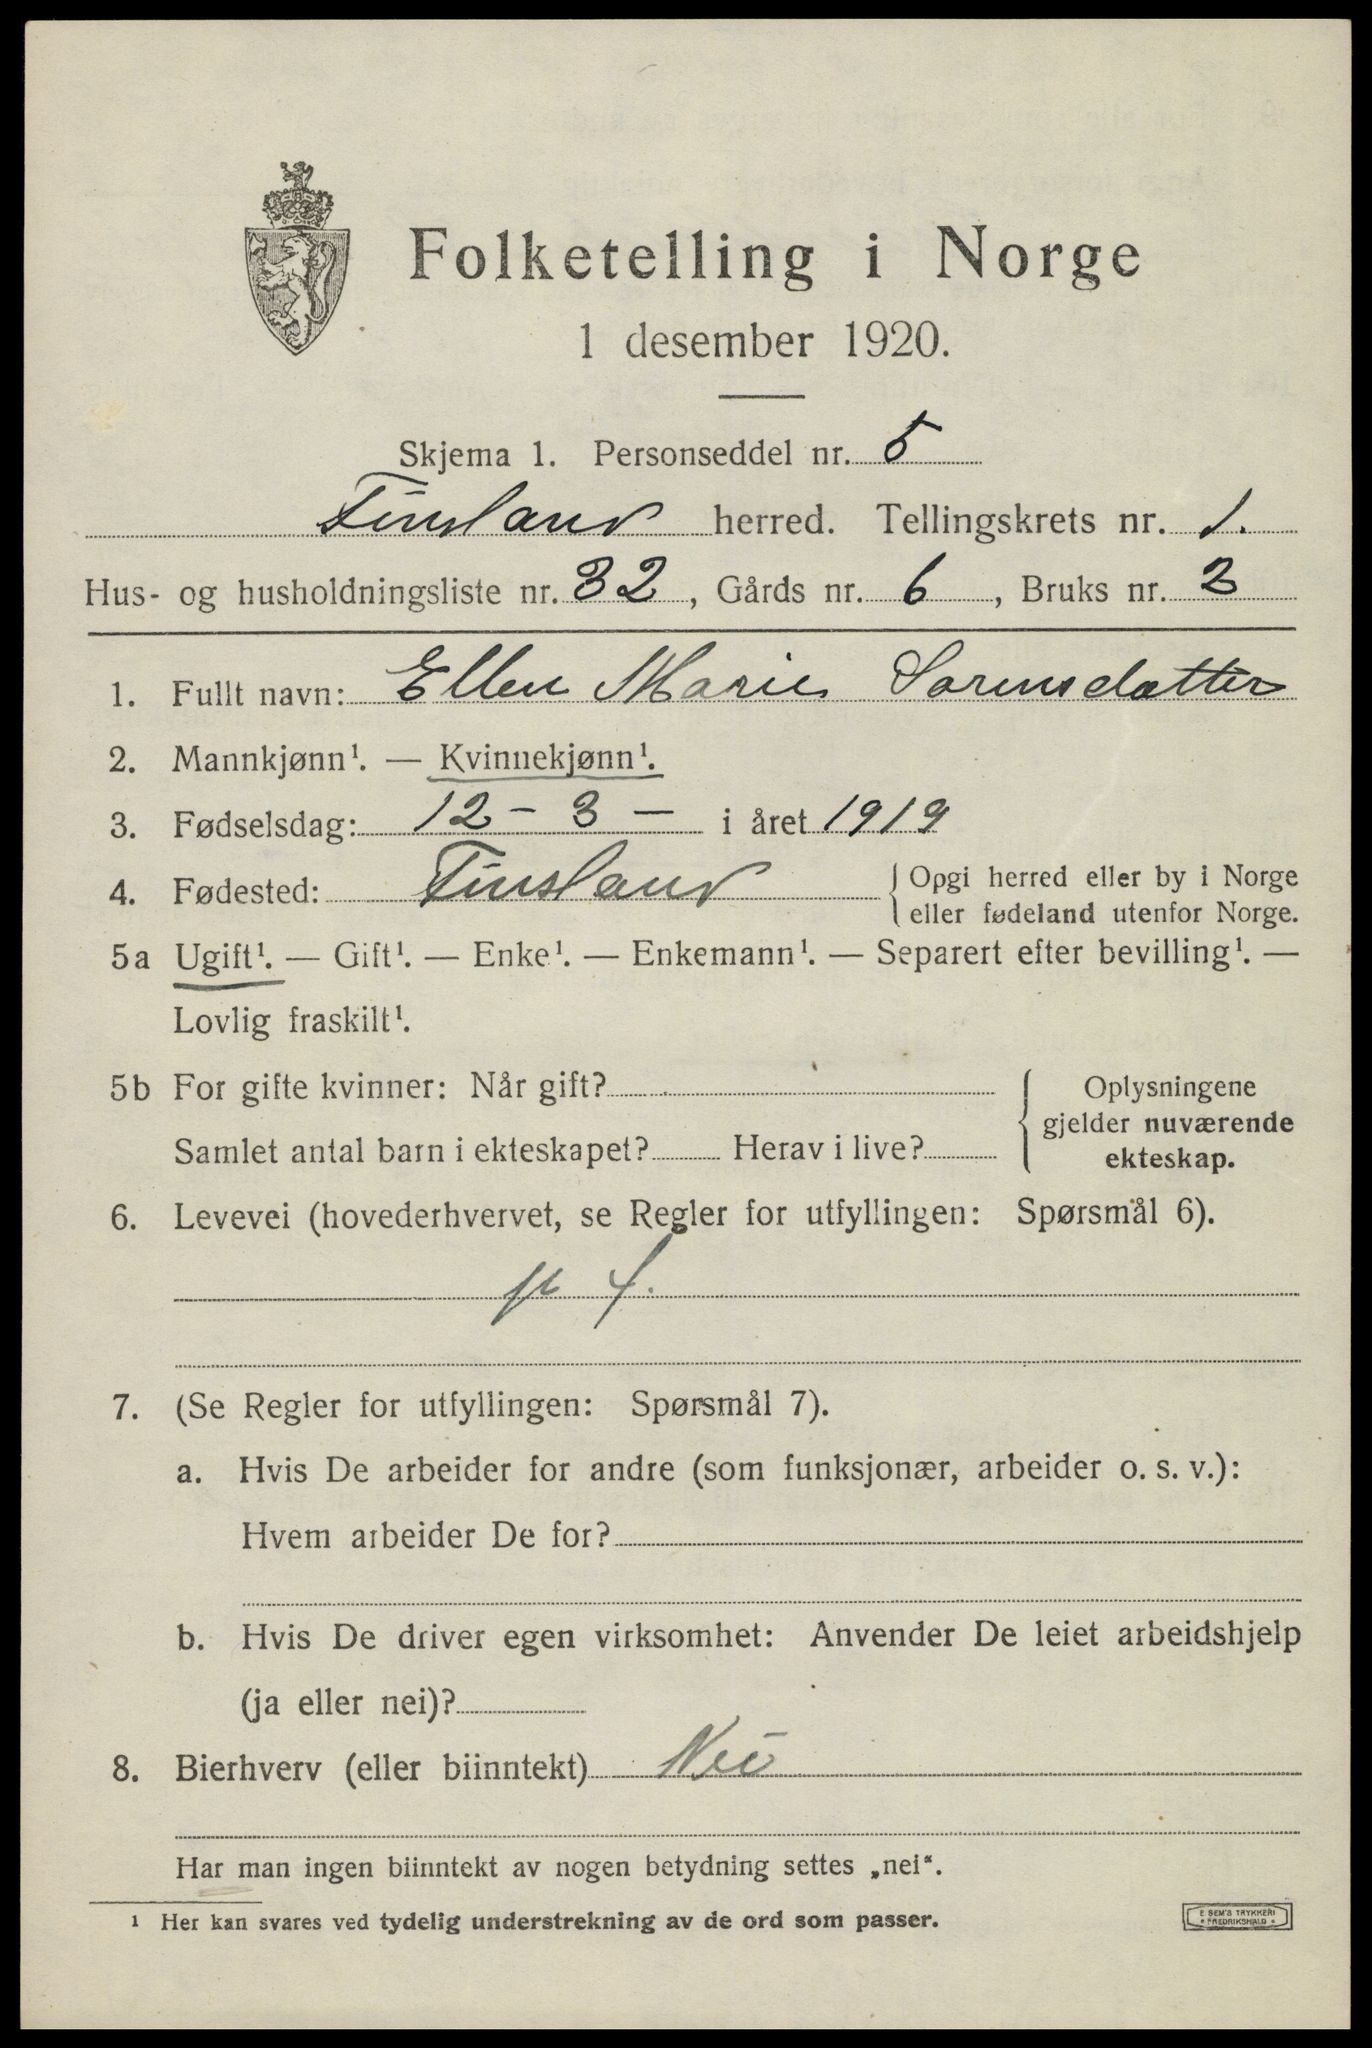 Folketelling i Norge
1 desember 1920.
Skjema 1. Personseddel nr. 5
Finsland herred. Tellingskrets nr. 1.
Hus- og husholdningsliste nr. 32, Gårds nr. 6, Bruks nr. 2
1. Fullt navn: Ellen Marie Sørensdatter
2. Mannkjønn¹. — Kvinnekjønn¹.
3. Fødselsdag: 12 – 3 – i året 1919
4. Fødested: Finsland { Opgi herred eller by i Norge
eller fødeland utenfor Norge.
5a Ugift¹. — Gift¹. — Enke¹. — Enkemann¹. — Separert efter bevilling¹. —
Lovlig fraskilt¹.
5b For gifte kvinner: Når gift? { Oplysningene
gjelder nuværende
Samlet antal barn i ekteskapet? Herav i live? ekteskap.
6. Levevei (hovederhvervet, se Regler for utfyllingen: Spørsmål 6).
7. (Se Regler for utfyllingen: Spørsmål 7).
a. Hvis De arbeider for andre (som funksjonær, arbeider o. s. v.):
Hvem arbeider De for?
b. Hvis De driver egen virksomhet: Anvender De leiet arbeidshjelp
(ja eller nei)?
8. Bierhverv (eller biinntekt) Nei
Har man ingen biinntekt av nogen betydning settes „nei“.
¹ Her kan svares ved tydelig understrekning av de ord som passer.
E SEM'S TRYKKERI
* FREDRIKSHALD *